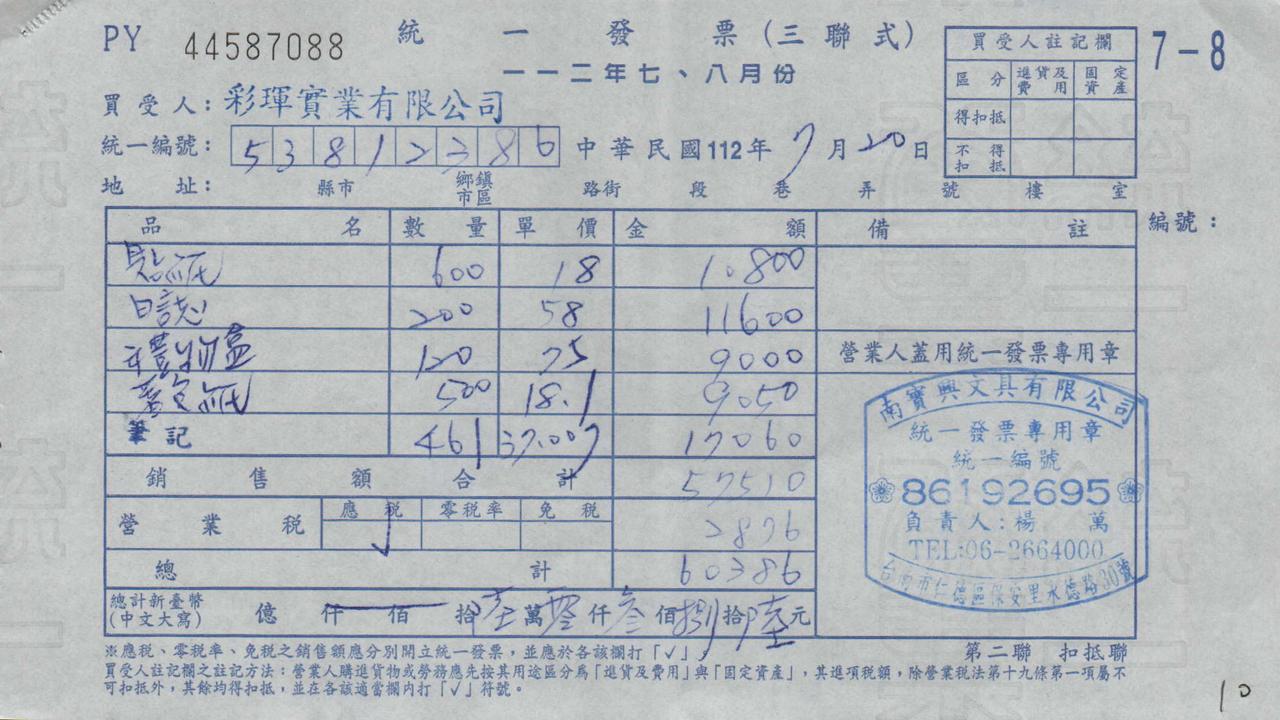 PY 44587088 統一發票(三聯式) 7-8
一一二年七、八月份
買受人註記欄
區分 進貨及費用 固定資產
得扣抵
不得扣抵
買受人: 彩琿實業有限公司
統一編號: 53812386 中華民國112年7月20日
地址: 縣市 鄉鎮市區 路街 段 巷 弄 號 樓 室
品名 數量 單價 金額 備註 編號:
貼紙 600 18 10800
日誌 200 58 11600
禮物盒 120 75 9000 營業人蓋用統一發票專用章
500 18.1 9050
筆記 461 37.007 17060
銷售額合計 57510
營業稅 應稅 零稅率 免稅 2876
√
總計 60386
南寶興文具有限公司
統一發票專用章
統一編號
86192695
負責人:楊萬
TEL:06-2664000
台南市仁德區保安里永德路30號
總計新臺幣(中文大寫) 億 仟 佰 拾 陸萬 零仟 叁佰 捌拾 陸元
※應稅、零稅率、免稅之銷售額應分別開立統一發票,並應於各該欄打「√」。 第二聯 扣抵聯
買受人註記欄之註記方法:營業人購進貨物或勞務應先按其用途區分為「進貨及費用」與「固定資產」,其進項稅額,除營業稅法第十九條第一項屬不
可扣抵外,其餘均得扣抵,並在各該適當欄內打「√」符號。
10